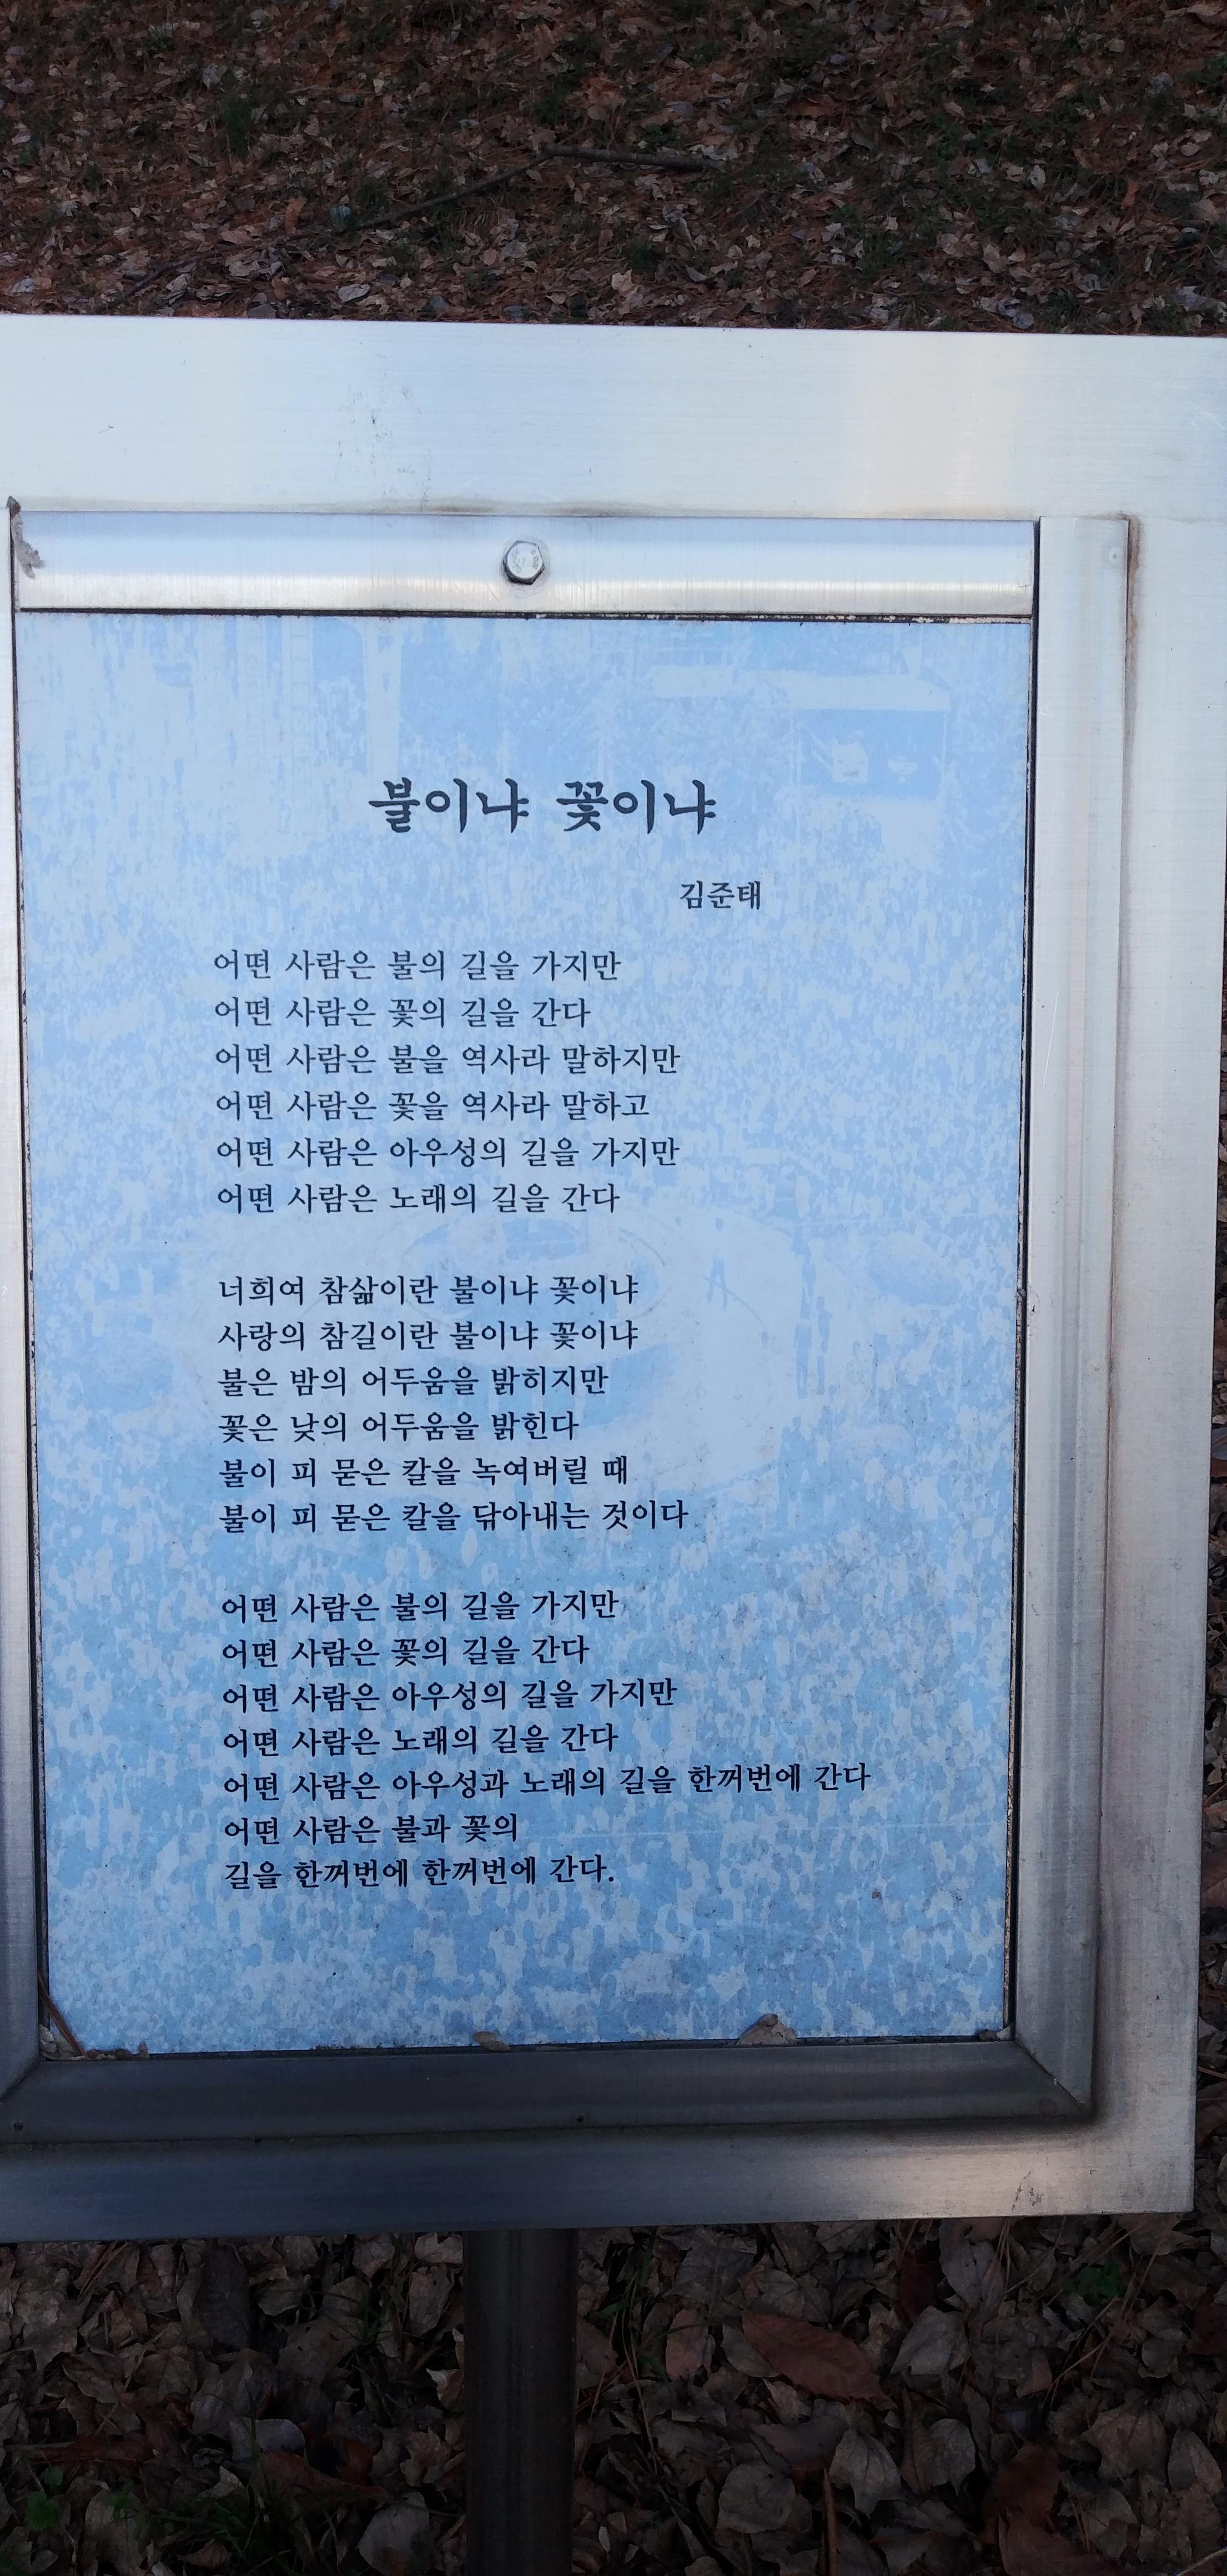 불이냐 꽃이냐
김준태
어떤 사람은 불의 길을 가지만
어떤 사람은 꽃의 길을 간다
어떤 사람은 불을 역사라 말하지만
어떤 사람은 꽃을 역사라 말하고
어떤 사람은 아우성의 길을 가지만
어떤 사람은 노래의 길을 간다
너희여 참삶이란 불이냐 꽃이냐
사랑의 참길이란 불이냐 꽃이냐
불은 밤의 어두움을 밝히지만
꽃은 낮의 어두움을 밝힌다
불이 피 묻은 칼을 녹여버릴 때
불이 피 묻은 칼을 닦아내는 것이다
어떤 사람은 불의 길을 가지만
어떤 사람은 꽃의 길을 간다
어떤 사람은 아우성의 길을 가지만
어떤 사람은 노래의 길을 간다
어떤 사람은 아우성과 노래의 길을 한꺼번에 간다
어떤 사람은 불과 꽃의
길을 한꺼번에 한꺼번에 간다.